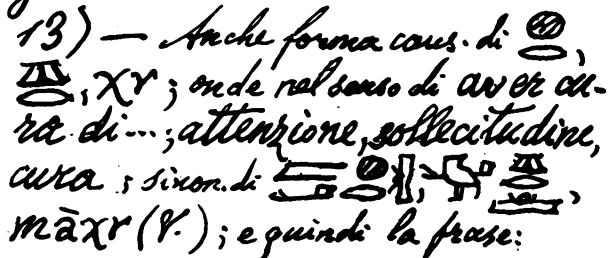 13) — Anche forma caus. di 𓐍𓂋,
𓄡𓂋, χr; onde nel senso di aver cu-
ra di...; attenzione, sollecitudine,
cura; sinon. di
māχr (V.); e quindi la frase: